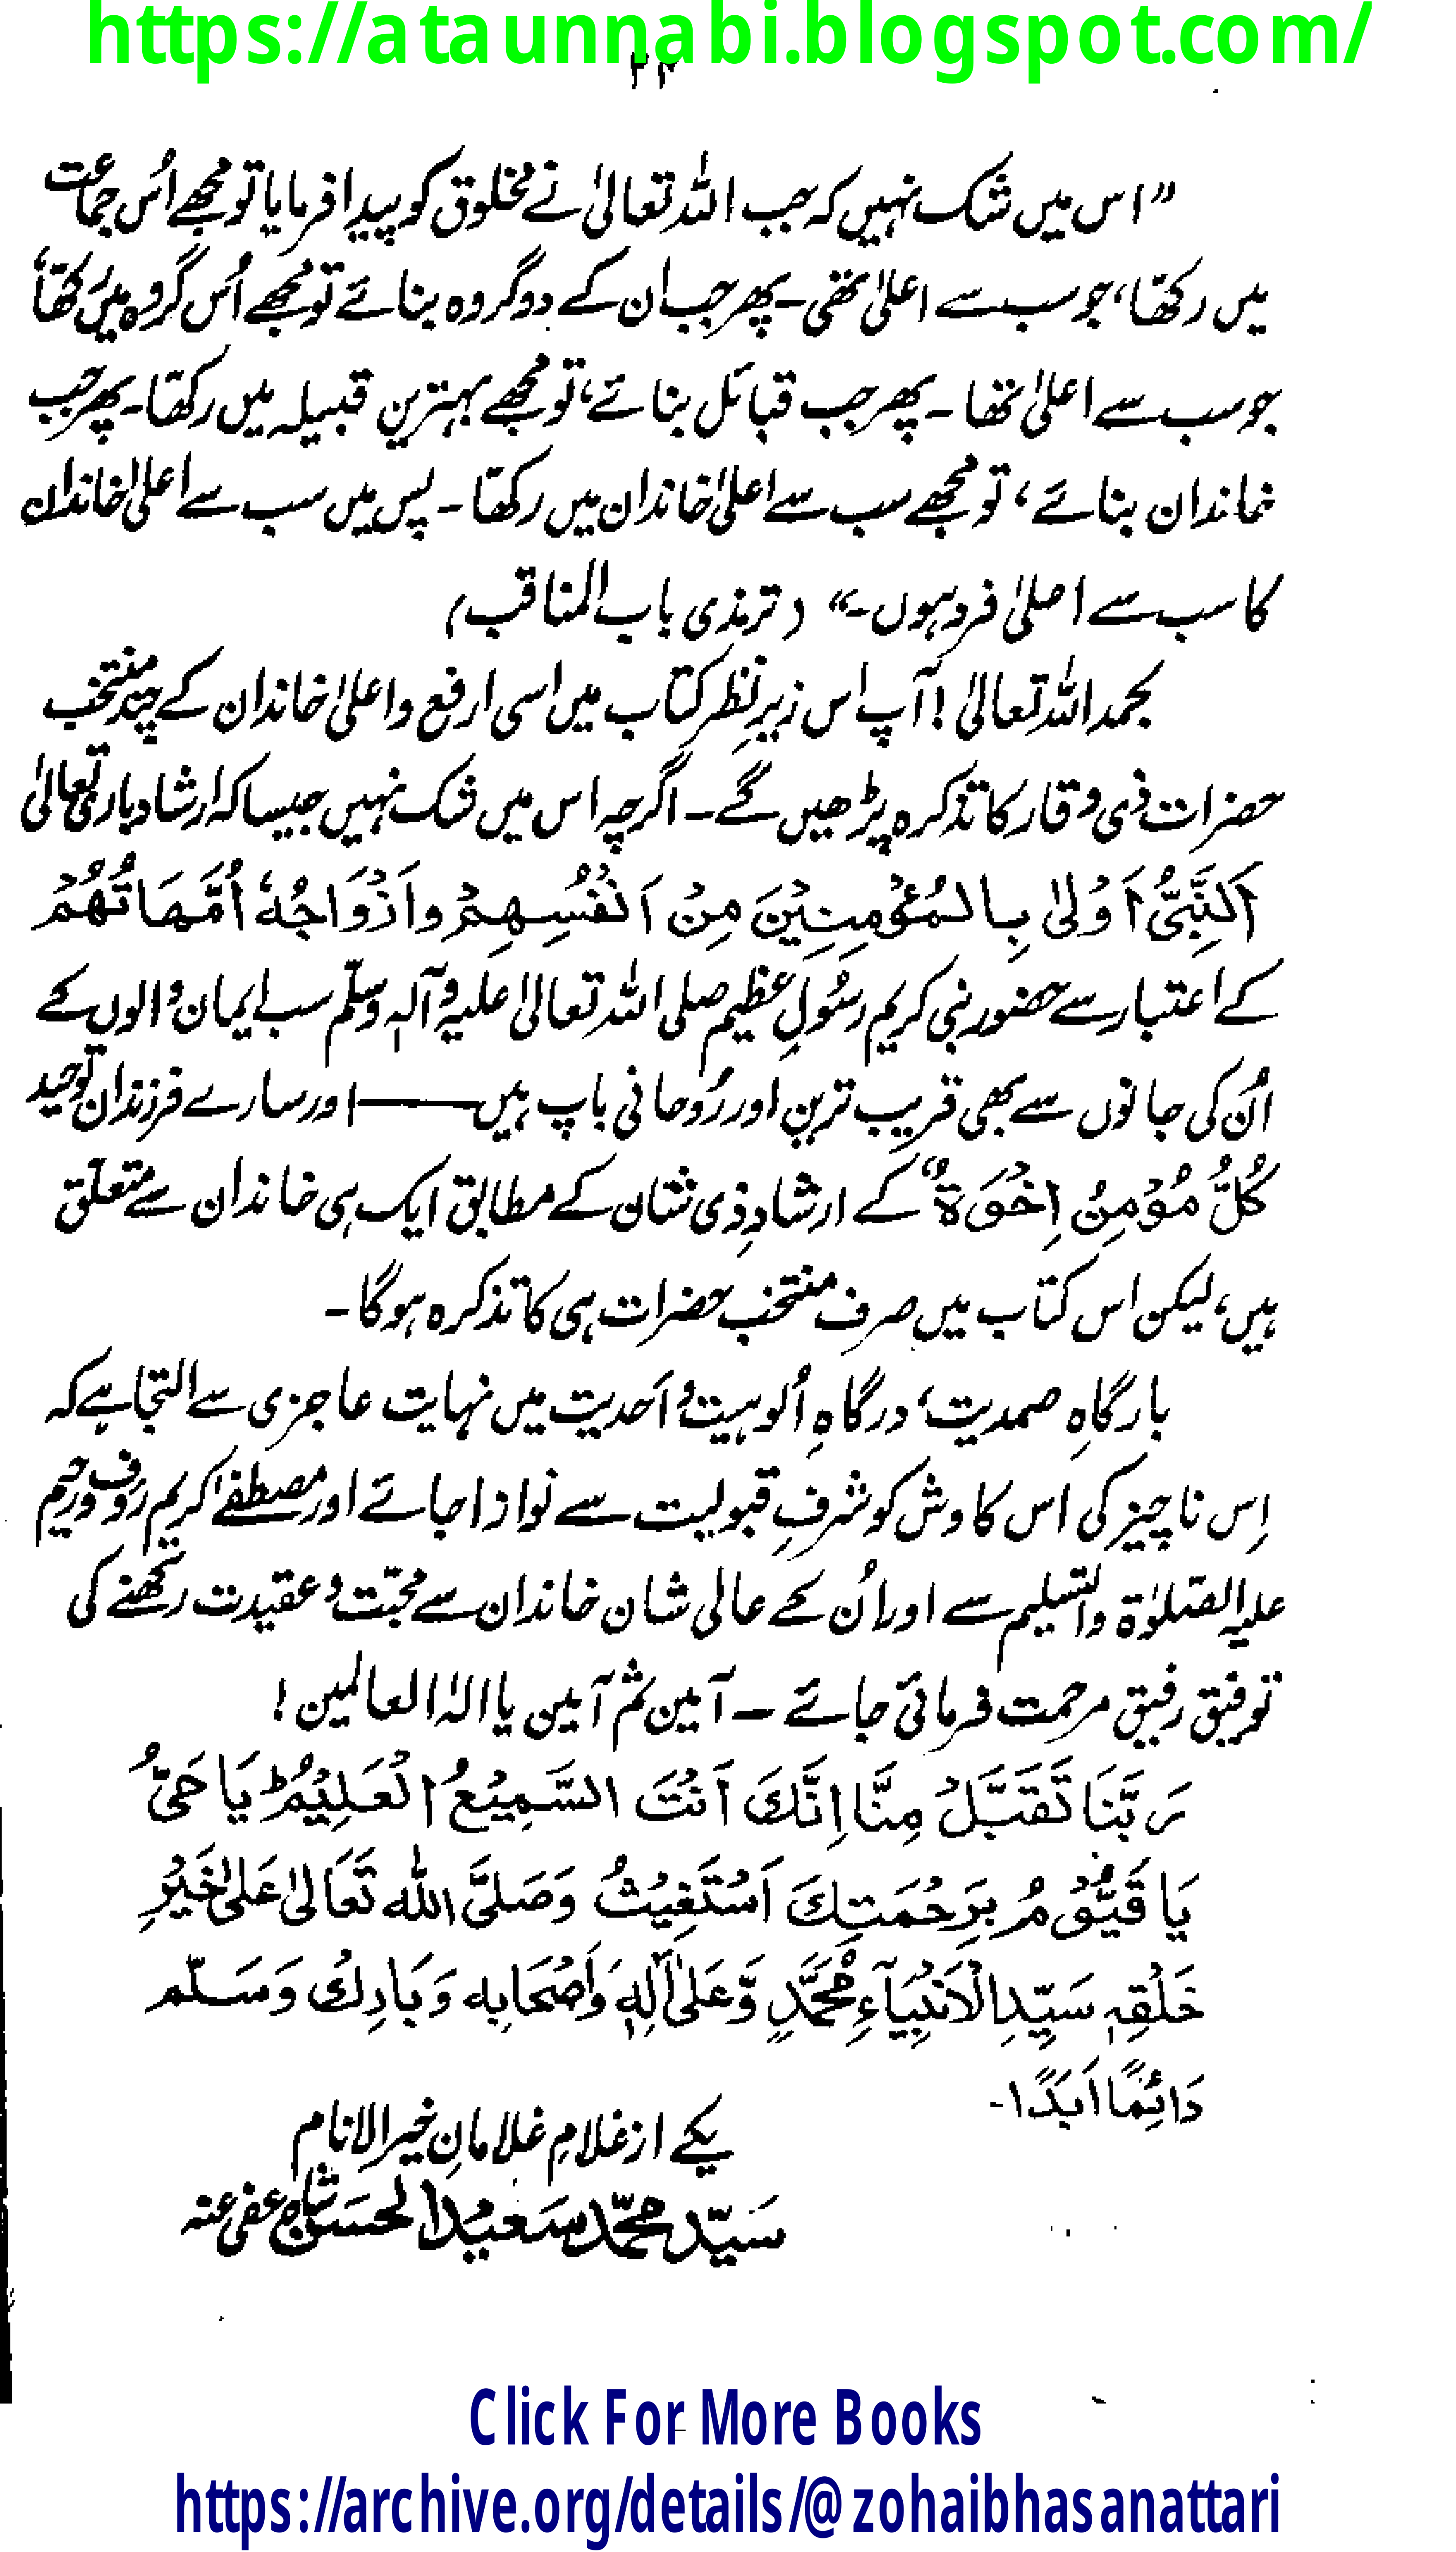 https://ataunnabi.blogspot.com/
۲۴
”اس میں شک نہیں کہ جب اللہ تعالیٰ نے مخلوق کو پیدا فرمایا تو مجھے اُس جماعت
میں رکھا، جو سب سے اعلیٰ تھی۔ پھر جب ان کے دو گروہ بنائے تو مجھے اُس گروہ میں رکھا،
جو سب سے اعلیٰ تھا۔ پھر جب قبائل بنائے، تو مجھے بہترین قبیلہ میں رکھا۔ پھر جب
خاندان بنائے، تو مجھے سب سے اعلیٰ خاندان میں رکھا۔ پس میں سب سے اعلیٰ خاندان
کا سب سے اصلیٰ فرد ہوں۔“ (ترمذی باب المناقب)
بحمد اللہ تعالیٰ! آپ اس زیرِ نظر کتاب میں اسی ارفع و اعلیٰ خاندان کے چند منتخب
حضرات ذی وقار کا تذکرہ پڑھیں گے۔ اگرچہ اس میں شک نہیں جیسا کہ ارشاد باری تعالیٰ
اَلنَّبِیُّ اَوْلیٰ بِالْمُؤْمِنِیْنَ مِنْ اَنْفُسِهِمْ واَزْوَاجُهٗ اُمَّهَاتُهُمْ
کے اعتبار سے حضور نبی کریم رسُولِ عظیم صلی اللہ تعالیٰ علیہ وآلہٖ وسلّم سب ایمان والوں کے
اُن کی جانوں سے بھی قریب ترین اور رُوحانی باپ ہیں——اور سارے فرزندان توحید
کُلُّ مُؤْمِنُ اِخْوَةٌ کے ارشادِ ذی شان کے مطابق ایک ہی خاندان سے متعلّق
ہیں، لیکن اس کتاب میں صرف منتخب حضرات ہی کا تذکرہ ہوگا۔
بارگاہِ صمدیت، درگاہِ اُلوہیت و اَحدیت میں نہایت عاجزی سے التجا ہے کہ
اِس ناچیز کی اس کاوش کو شرفِ قبولیت سے نوازا جائے اور مصطفےٰ کریم رؤف و رحیم
علیہ الصّلوٰة والتسلیم سے اور اُن کے عالی شان خاندان سے محبّت و عقیدت رکھنے کی
توفیق رفیق مرحمت فرمائی جائے ۔ آمین ثم آمین یا الٰہ العالمین!
رَبَّنَا تَقَبَّلْ مِنَّا اِنَّكَ اَنْتَ السَّمِیْعُ الْعَلِیْمُ ط یَا حَیُّ
یَا قَیُّوْمُ بِرَحْمَتِكَ اَسْتَغِیْثُ وَصَلَّی اللّٰه تَعَالیٰ عَلیٰ خَیْرِ
خَلْقِهٖ سَیِّدِ الْاَنْبِیَآءِ مُحَمَّدٍ وَّعَلیٰ اٰلِهٖ وَاَصْحَابِه وَبَارِكْ وَسَلّم
دَائِمًا اَبَدًا۔
یکے از غلامِ غلامانِ خیر الانام
سیّد محمّد سعید الحسن شاہ عفی عنہ
Click For More Books
https://archive.org/details/@zohaibhasanattari